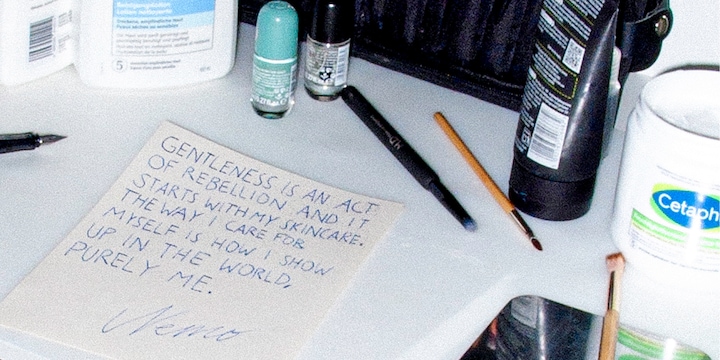 GENTLENESS IS AN ACT
OF REBELLION AND IT
STARTS WITH MY SKINCARE.
THE WAY I CARE FOR
MYSELF IS HOW I SHOW
UP IN THE WORLD,
PURELY ME.
Nemo
Cetaph
5